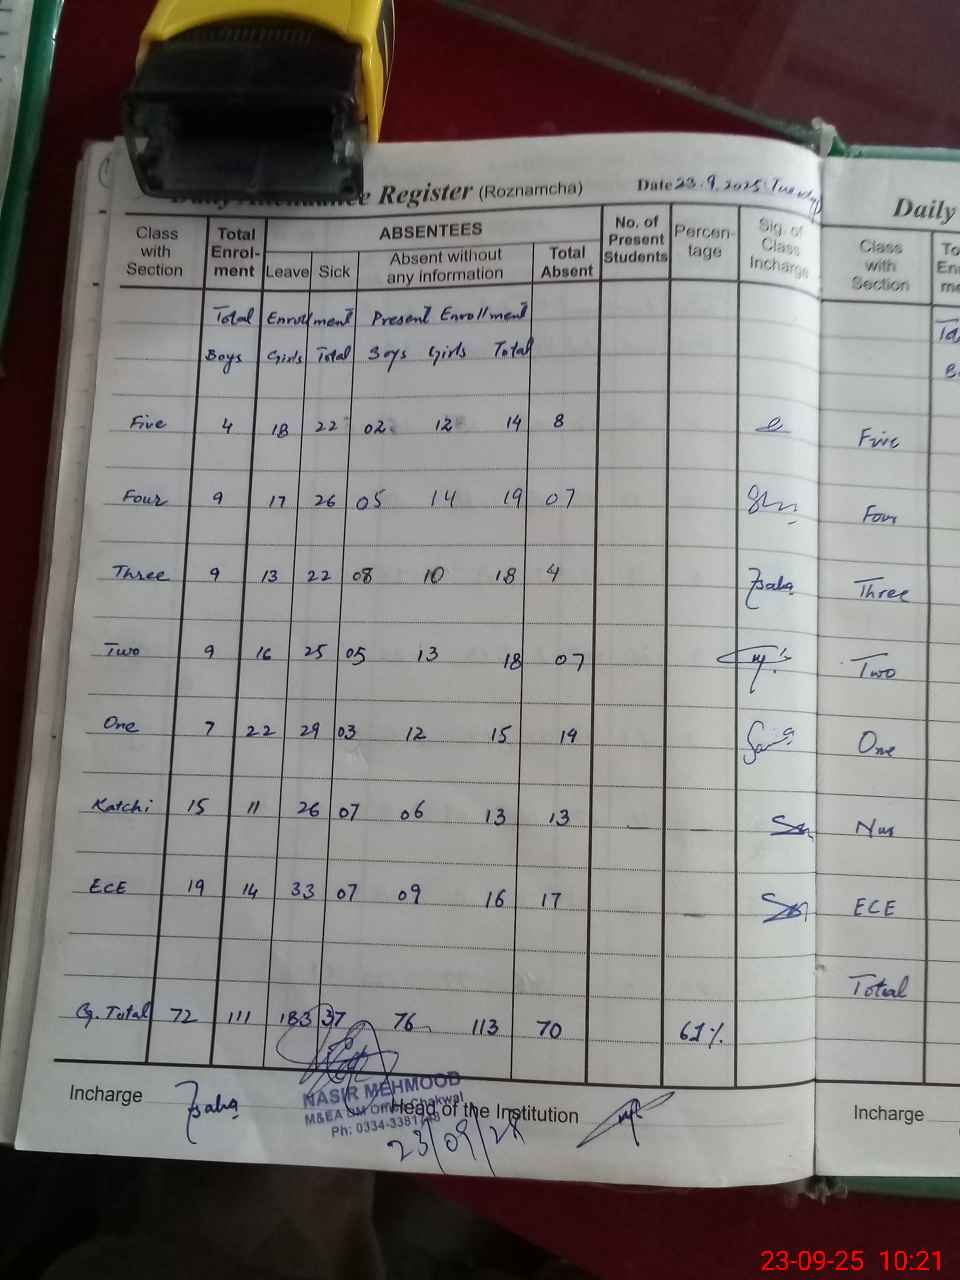 Daily Attendance Register (Roznamcha) Date 23.9.2025 Tuesday
Class with Section Total Enrol-ment ABSENTEES No. of Present Students Percen-tage Sig. of Class Incharge
Leave Sick Absent without any information Total Absent
Total Enrollment Present Enrollment
Boys Girls Total Boys Girls Total
Five 4 18 22 02 12 14 8
Four 9 17 26 05 14 19 07
Three 9 13 22 08 10 18 4
Two 9 16 25 05 13 18 07
One 7 22 29 03 12 15 19
Katchi 15 11 26 07 06 13 13
ECE 19 14 33 07 09 16 17
G. Total 72 111 183 37 76 113 70 61%
Incharge Zsaba Head of the Institution
NASIR MEHMOOD
M&EA Chakwal
Ph: 0334-3381748
23/09/25
Daily
Class with Section
Five
Four
Three
Two
One
Nur
ECE
Total
Incharge
23-09-25 10:21